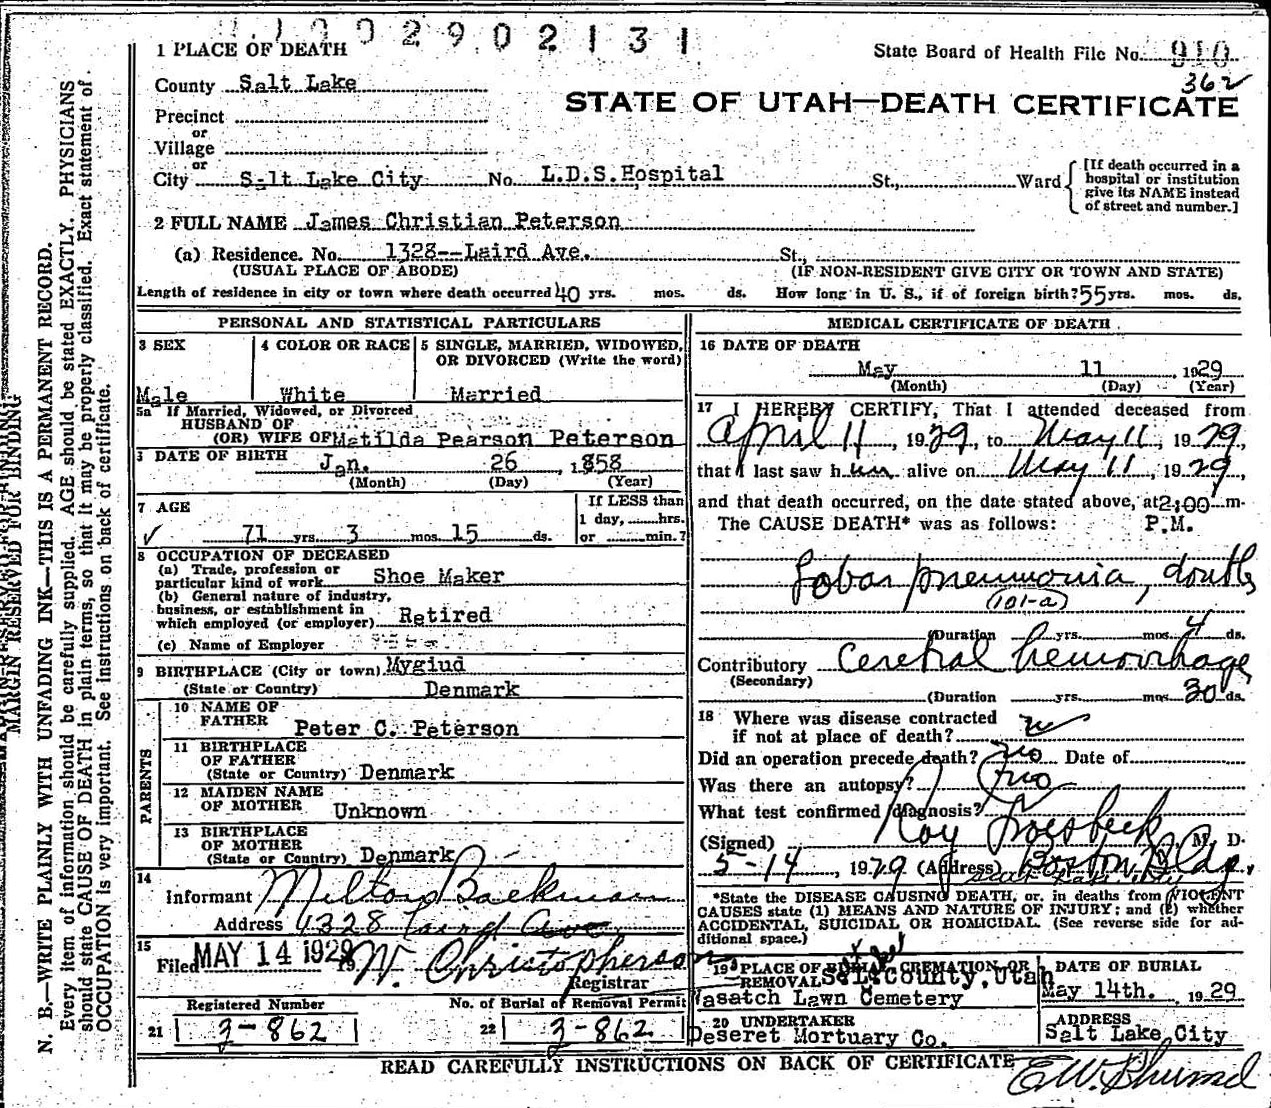 2902131
1 PLACE OF DEATH
State Board of Health File No. 910
362
County Salt Lake
STATE OF UTAH—DEATH CERTIFICATE
Precinct
or
Village
or
City Salt Lake City No. L.D.S.Hospital St., Ward
[If death occurred in a
hospital or institution
give its NAME instead
of street and number.]
2 FULL NAME James Christian Peterson
(a) Residence. No. 1328--Laird Ave. St.,
(USUAL PLACE OF ABODE) (IF NON-RESIDENT GIVE CITY OR TOWN AND STATE)
Length of residence in city or town where death occurred 40 yrs. mos. ds. How long in U. S., if of foreign birth? 55 yrs. mos. ds.
PERSONAL AND STATISTICAL PARTICULARS
3 SEX
Male
4 COLOR OR RACE
White
5 SINGLE, MARRIED, WIDOWED,
OR DIVORCED (Write the word)
Married
5a If Married, Widowed, or Divorced
HUSBAND OF
(OR) WIFE OF Matilda Pearson Peterson
DATE OF BIRTH
Jan. 26 , 1858
(Month) (Day) (Year)
7 AGE
71 yrs. 3 mos. 15 ds.
If LESS than
1 day, hrs.
or min.?
8 OCCUPATION OF DECEASED
(a) Trade, profession or
particular kind of work Shoe Maker
(b) General nature of industry,
business, or establishment in
which employed (or employer) Retired
(c) Name of Employer
9 BIRTHPLACE (City or town) Mygiud
(State or Country) Denmark
PARENTS
10 NAME OF
FATHER Peter C. Peterson
11 BIRTHPLACE
OF FATHER
(State or Country) Denmark
12 MAIDEN NAME
OF MOTHER Unknown
13 BIRTHPLACE
OF MOTHER
(State or Country) Denmark
14
Informant Milton Backman
Address 1328 Laird Ave
15
Filed MAY 14 1929 19 W. Christopherson
Registrar
Registered Number
21 3-862
No. of Burial or Removal Permit
22 3-862
MEDICAL CERTIFICATE OF DEATH
16 DATE OF DEATH
May 11 , 1929
(Month) (Day) (Year)
17 I HEREBY CERTIFY, That I attended deceased from
April 11, 1929, to May 11, 1929,
that I last saw him alive on May 11, 1929,
and that death occurred, on the date stated above, at 2:00 m.
The CAUSE DEATH* was as follows: P.M.
Lobar pneumonia, double
(101-a)
(Duration yrs. mos. 4 ds.
Contributory Cerebral hemorrhage
(Secondary)
(Duration yrs. mos. 30 ds.
18 Where was disease contracted
if not at place of death?
Did an operation precede death? no Date of
Was there an autopsy? no
What test confirmed diagnosis?
(Signed) Roy Groesbeck M. D.
5-14 , 1929 (Address) Boston Bldg.
*State the DISEASE CAUSING DEATH, or, in deaths from VIOLENT
CAUSES state (1) MEANS AND NATURE OF INJURY; and (2) whether
ACCIDENTAL, SUICIDAL OR HOMICIDAL. (See reverse side for ad-
ditional space.)
19 PLACE OF BURIAL, CREMATION OR
REMOVAL County, Utah
Wasatch Lawn Cemetery
DATE OF BURIAL
May 14th. , 1929
20 UNDERTAKER
Deseret Mortuary Co.
ADDRESS
Salt Lake City
READ CAREFULLY INSTRUCTIONS ON BACK OF CERTIFICATE
MARGIN RESERVED FOR BINDING
N. B.—WRITE PLAINLY WITH UNFADING INK—THIS IS A PERMANENT RECORD.
Every item of information should be carefully supplied. AGE should be stated EXACTLY. PHYSICIANS
should state CAUSE OF DEATH in plain terms, so that it may be properly classified. Exact statement of
OCCUPATION is very important. See instructions on back of certificate.